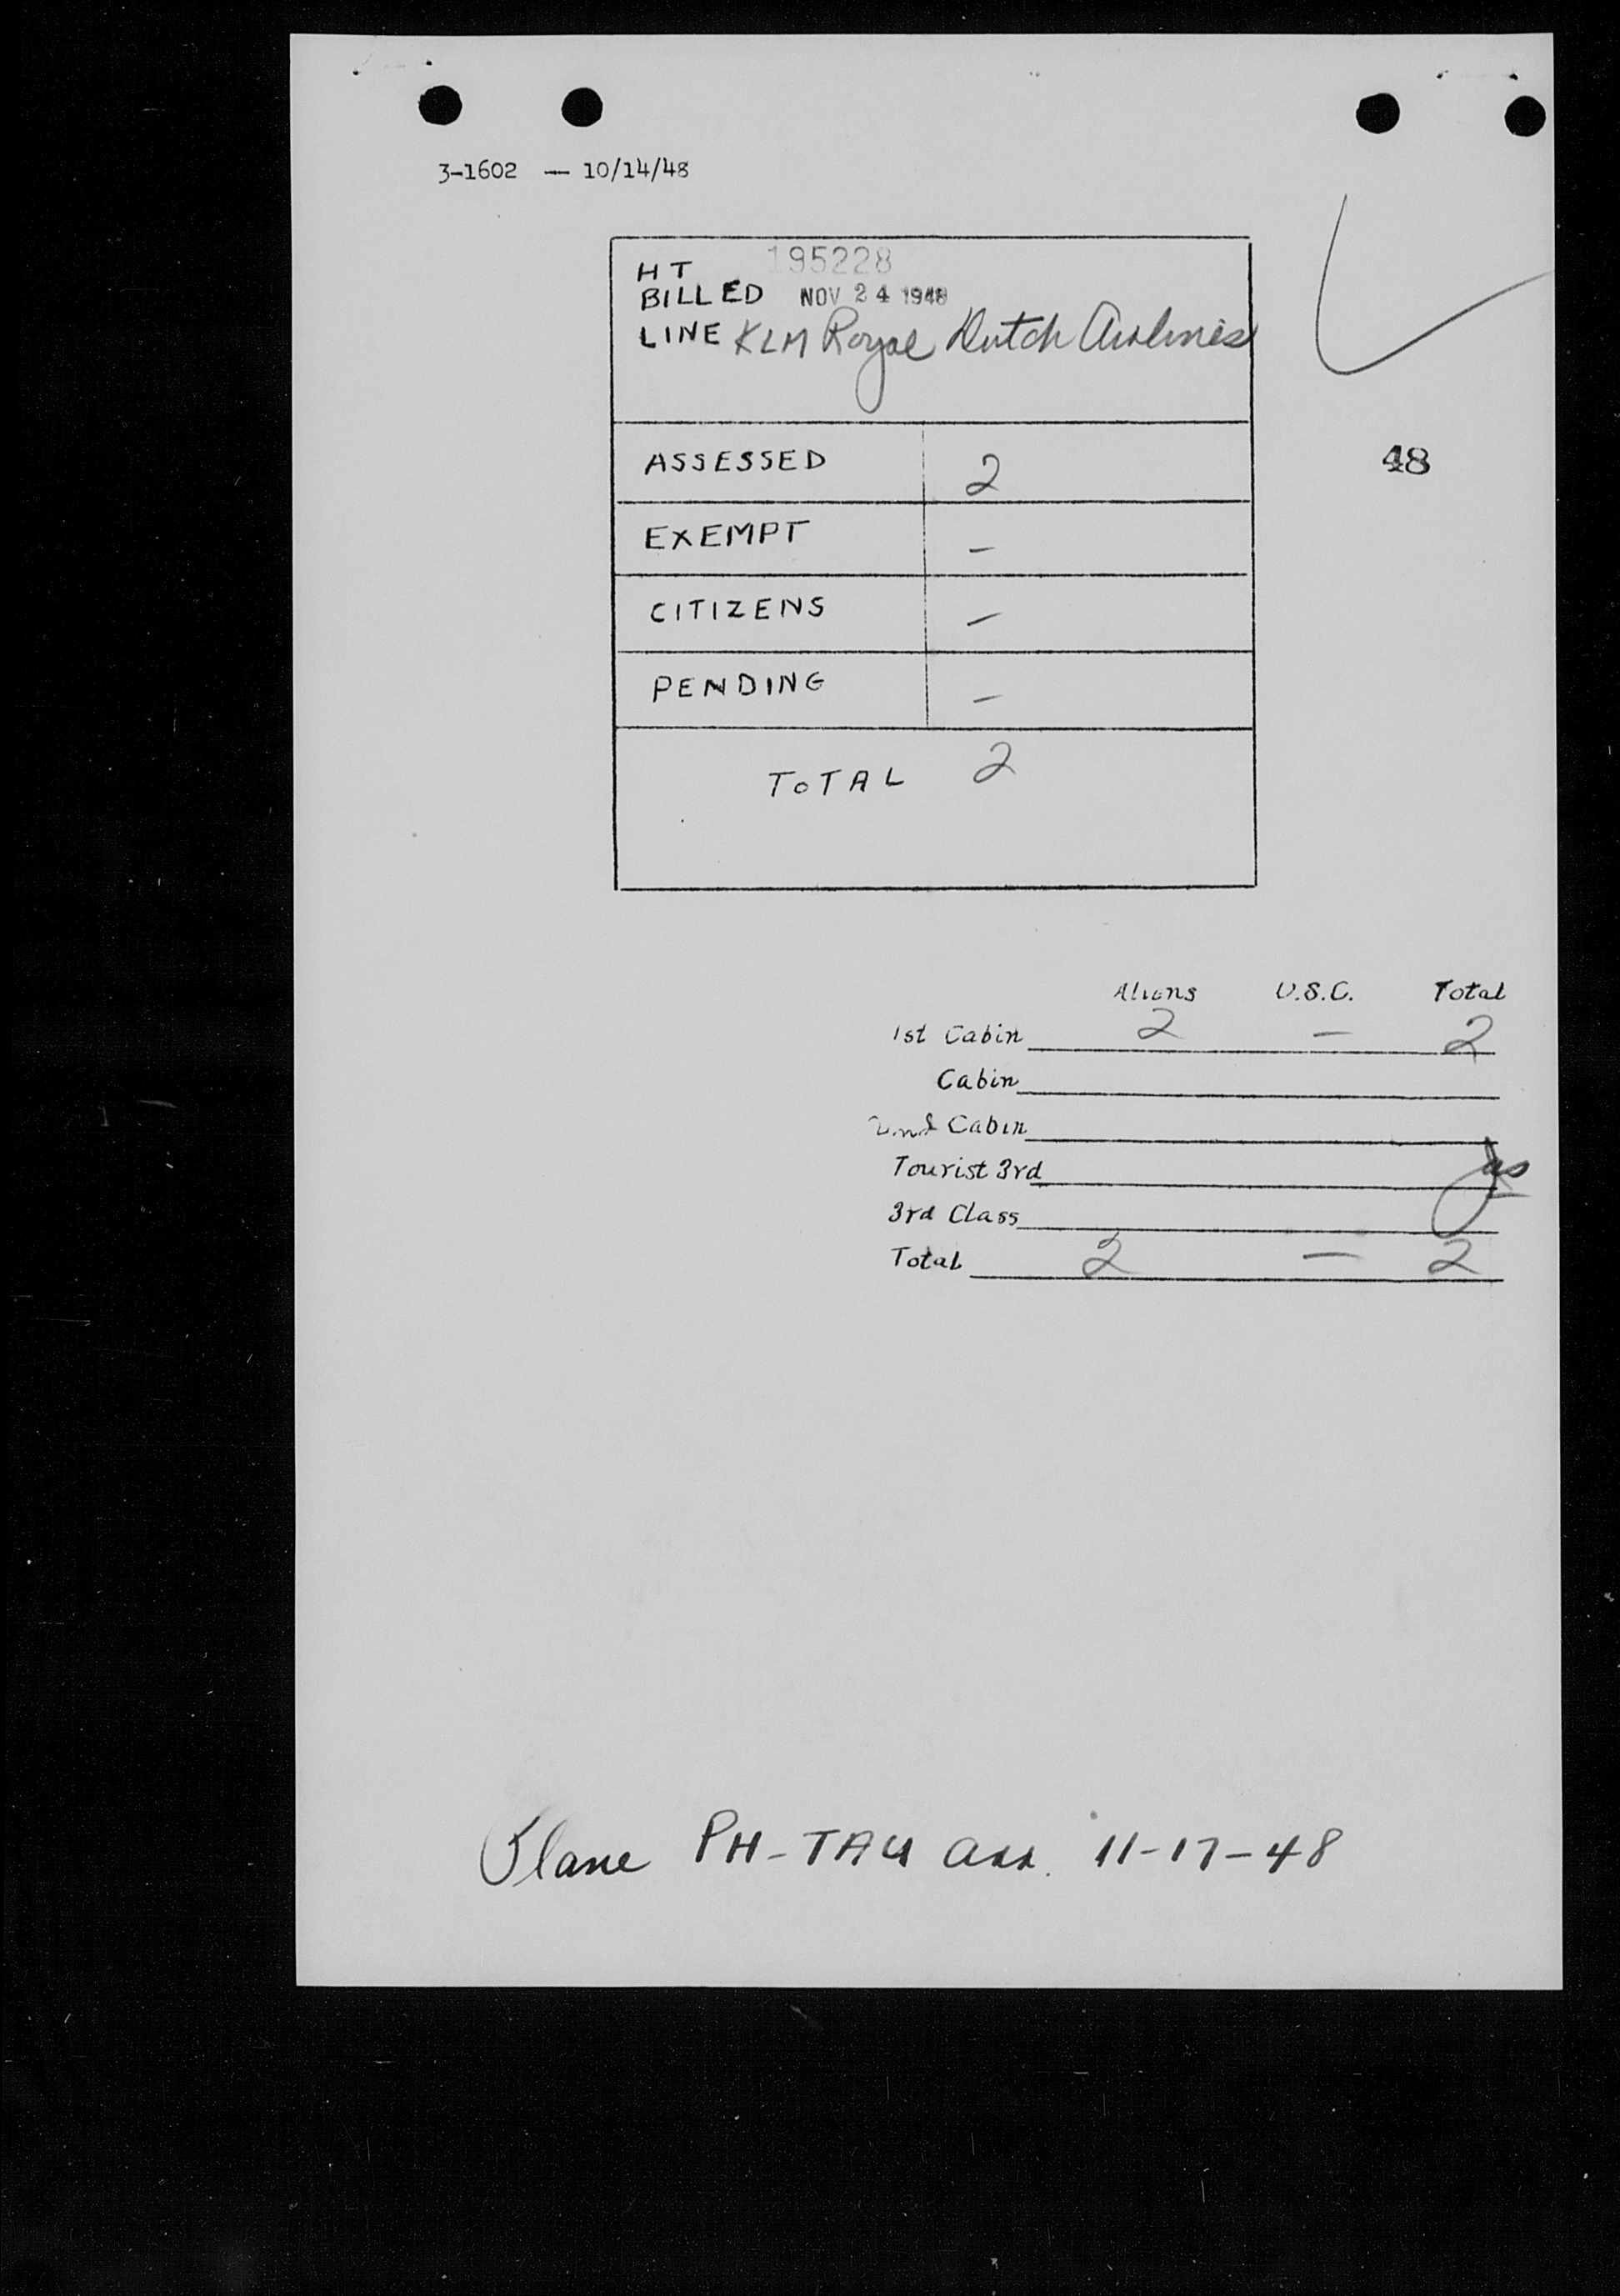 3-1602 — 10/14/48
HT 195228
BILLED NOV 24 1948
LINE KLM Royal Dutch Airlines
48
ASSESSED 2
EXEMPT –
CITIZENS –
PENDING –
TOTAL 2
Aliens U.S.C. Total
1st Cabin 2 – 2
Cabin
2nd Cabin
Tourist 3rd
3rd Class
Total 2 – 2
Plane PH-TAU arr. 11-17-48